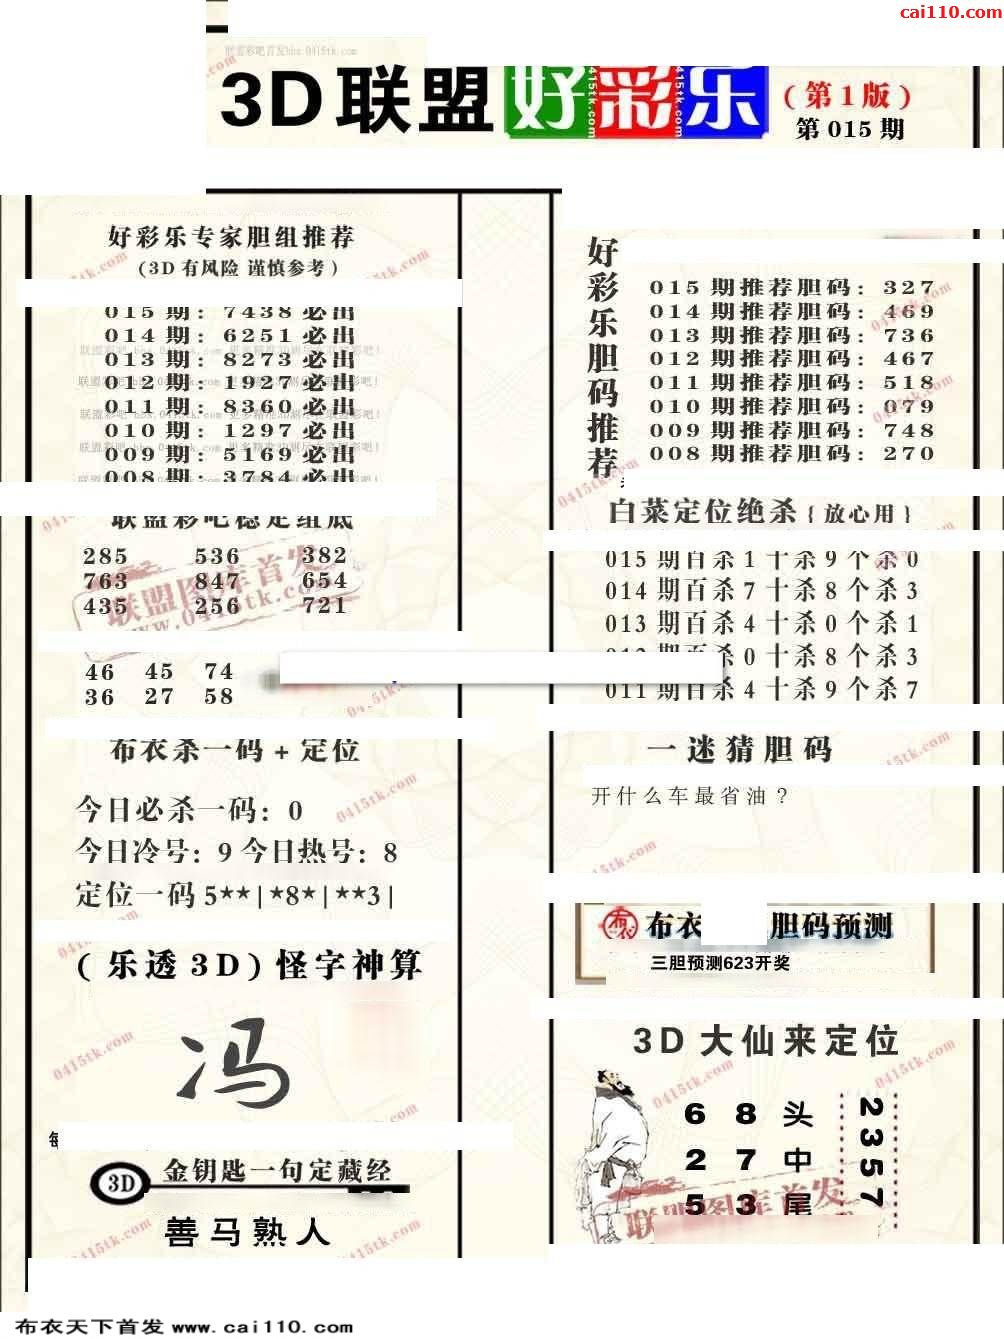 cai110.com
3D联盟好彩乐
(第1版)
第015期
好彩乐专家胆组推荐
(3D有风险 谨慎参考)
015期: 7438必出
014期: 6251必出
013期: 8273必出
012期: 1927必出
011期: 8360必出
010期: 1297必出
009期: 5169必出
008期: 3784必出
联盟彩吧稳定组底
285 536 382
763 847 654
435 256 721
46 45 74
36 27 58
布衣杀一码+定位
今日必杀一码: 0
今日冷号: 9 今日热号: 8
定位一码 5★★|★8★|★★3|
(乐透3D)怪字神算
冯
3D 金钥匙一句定藏经
善马熟人
好彩乐胆码推荐
015期推荐胆码: 327
014期推荐胆码: 469
013期推荐胆码: 736
012期推荐胆码: 467
011期推荐胆码: 518
010期推荐胆码: 079
009期推荐胆码: 748
008期推荐胆码: 270
白菜定位绝杀{放心用}
015期百杀1十杀9个杀0
014期百杀7十杀8个杀3
013期百杀4十杀0个杀1
012期百杀0十杀8个杀3
011期百杀4十杀9个杀7
一迷猜胆码
开什么车最省油?
布衣 胆码预测
三胆预测623开奖
3D大仙来定位
6 8 头
2 7 中
5 3 尾
2357
联盟图库首发
www.0415tk.com
布衣天下首发 www.cai110.com